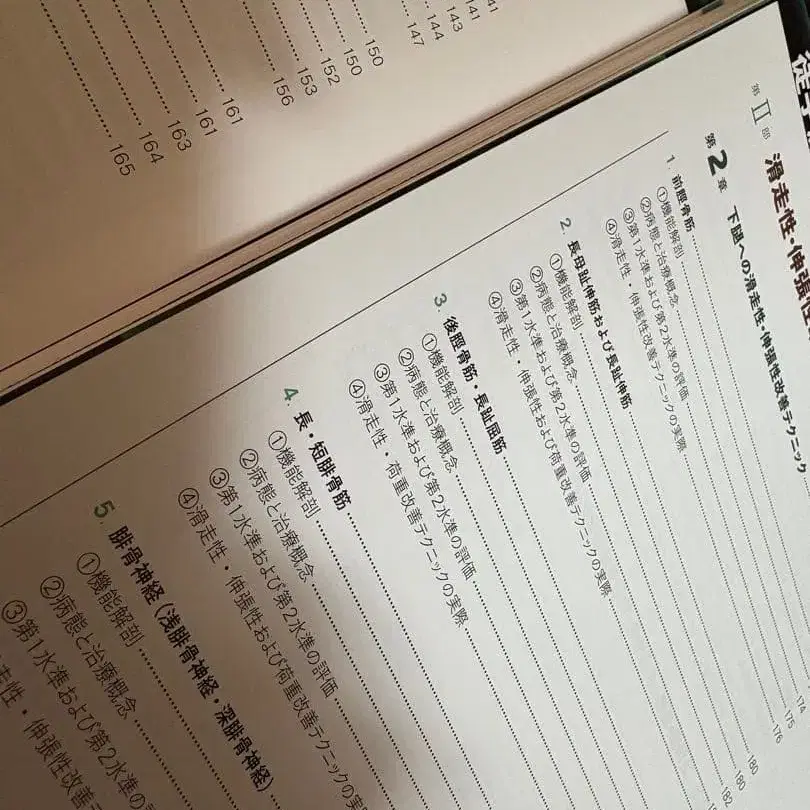 141
141
143
144
147
150
150
152
153
156
161
161
163
164
165
第Ⅱ部
滑走性・伸張性
第2章 下腿への滑走性・伸張性改善テクニック
1. 前脛骨筋
①機能解剖
②病態と治療概念
③第1水準および第2水準の評価
④滑走性・伸張性改善テクニックの実際
2. 長母趾伸筋および長趾伸筋
①機能解剖
②病態と治療概念
③第1水準および第2水準の評価
④滑走性・伸張性および荷重改善テクニックの実際
3. 後脛骨筋・長趾屈筋
①機能解剖
②病態と治療概念
③第1水準および第2水準の評価
④滑走性・荷重改善テクニックの実際
4. 長・短腓骨筋
①機能解剖
②病態と治療概念
③第1水準および第2水準の評価
④滑走性・伸張性および荷重改善テクニックの実際
5. 腓骨神経（浅腓骨神経・深腓骨神経）
①機能解剖
②病態と治療概念
③第1水準および第2水準の
走性・伸張性改善テ
174
175
176
180
180